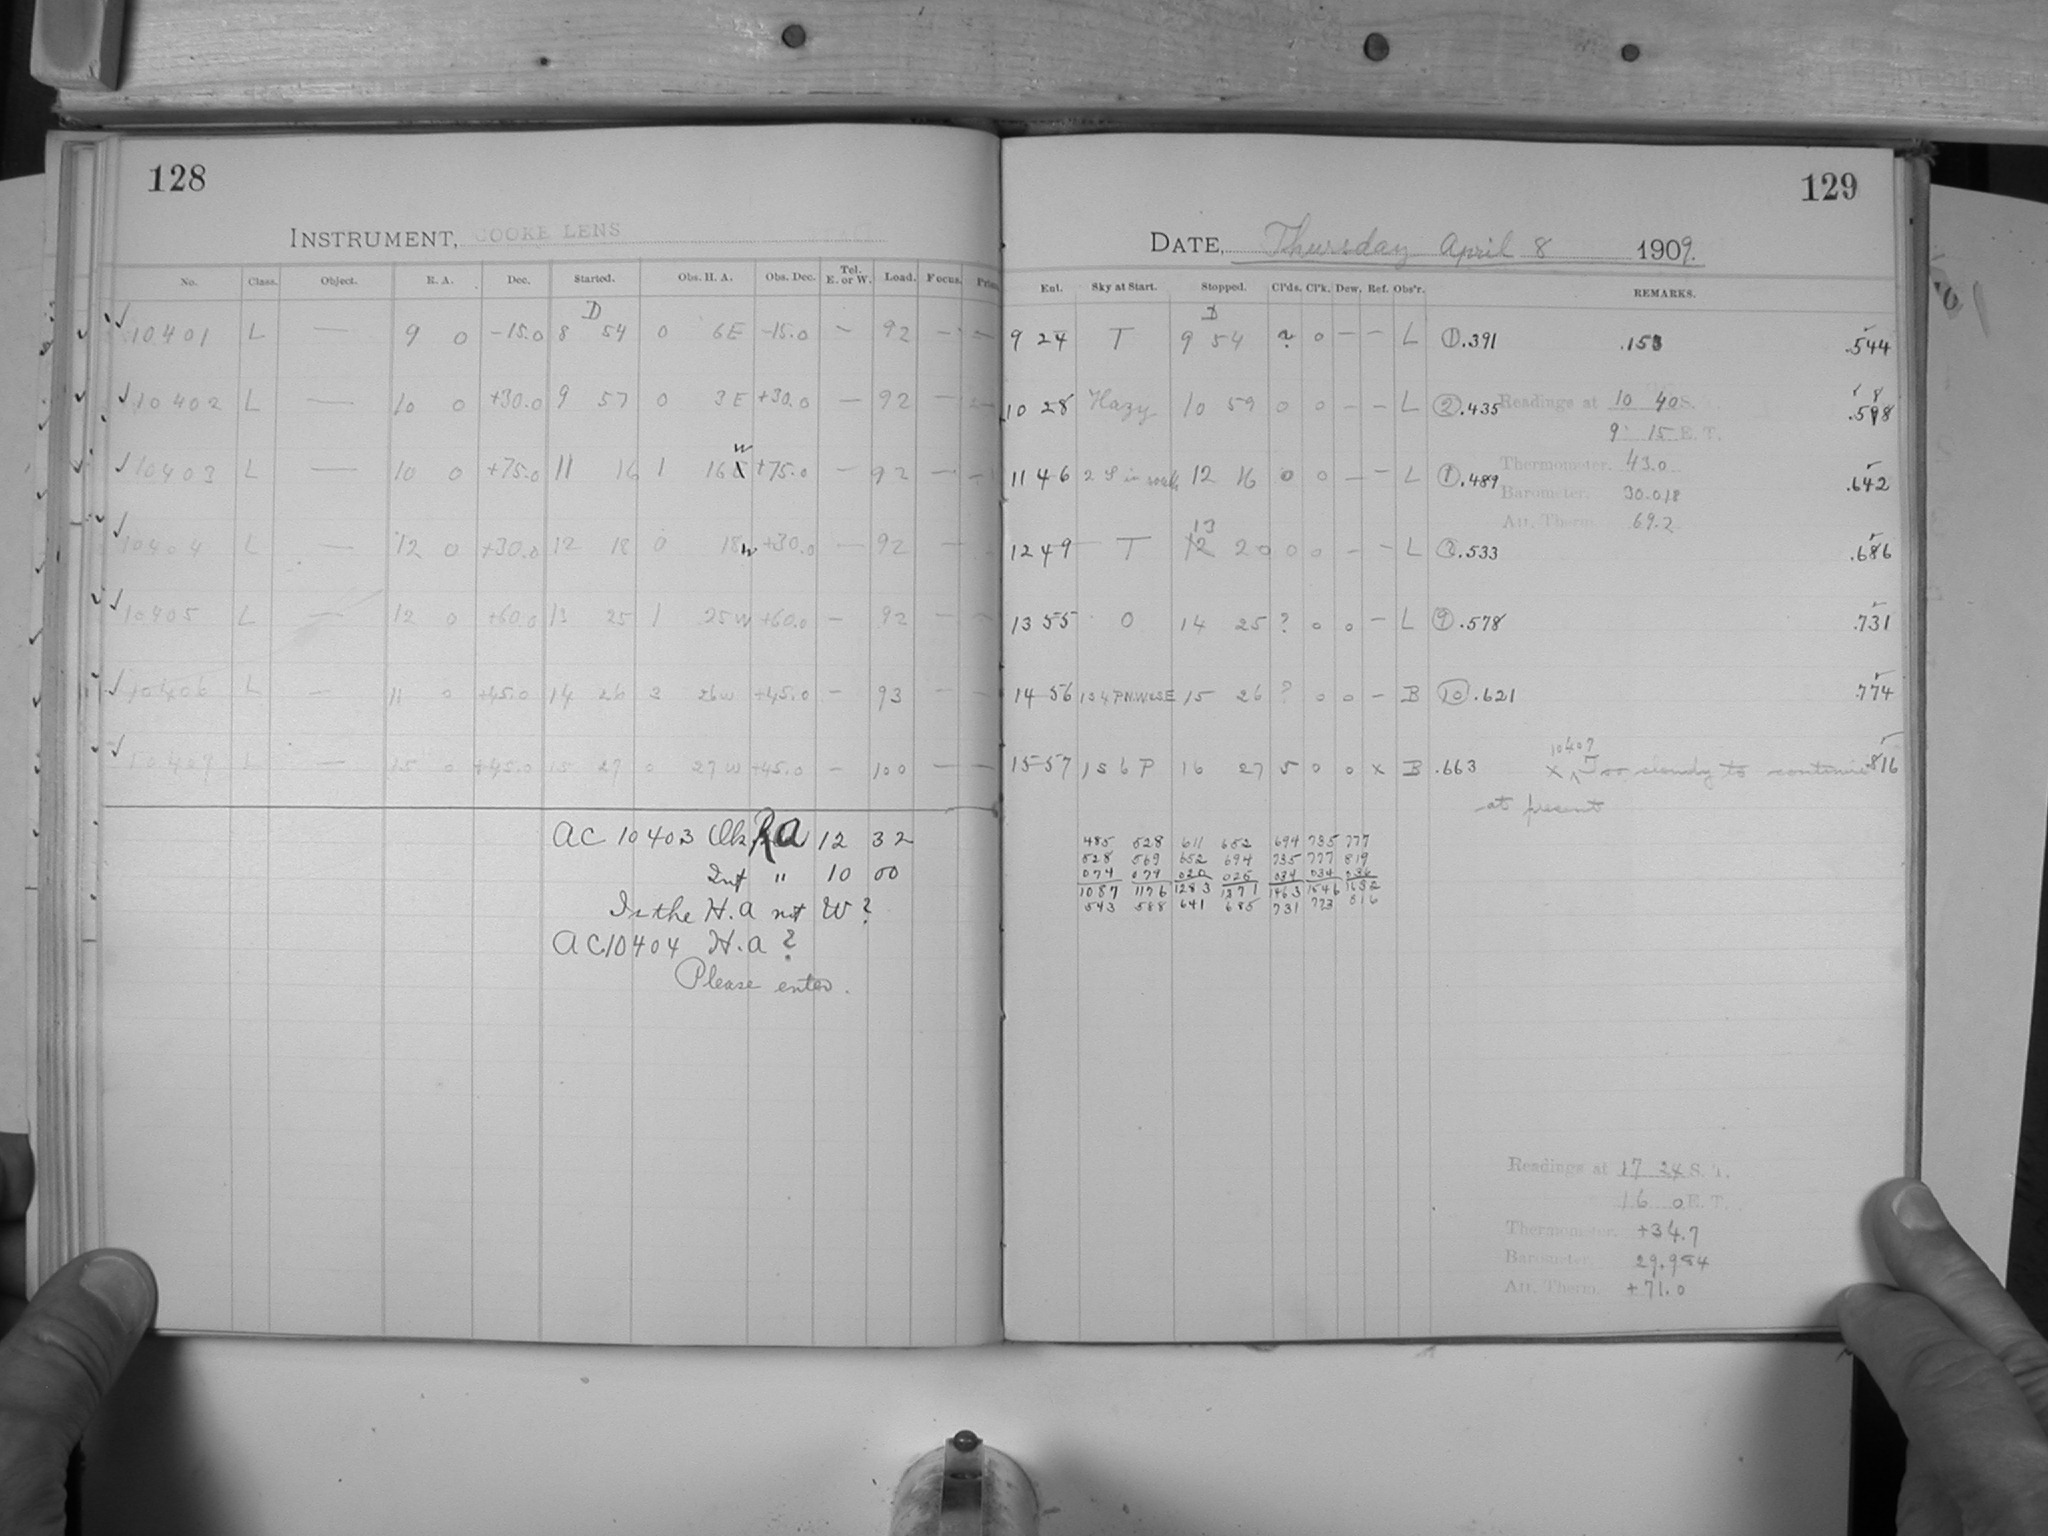 128
INSTRUMENT, COOKE LENS
No. Class. Object. R. A. Dec. Started. Obs. H. A. Obs. Dec. Tel. E. or W. Load. Focus.
D
10401 L — 9 0 -15.0 8 54 0 6E -15.0 — 92 — —
10402 L — 10 0 +30.0 9 57 0 3E +30.0 — 92 — —
W
10403 L — 10 0 +75.0 11 16 1 16 +75.0 — 92 — —
10404 L — 12 0 +30.0 12 18 0 18w +30.0 — 92 —
10405 L — 12 0 +60.0 13 25 1 25W +60.0 — 92 — —
10406 L — 11 0 +45.0 14 26 3 26W +45.0 — 93 — —
10407 L — 15 0 +45.0 15 27 0 27W +45.0 — 100 — —
AC 10403 RA 12 32
" 10 00
Is the H.A not W?
AC 10404 H.A?
Please enter.
129
DATE, Thursday April 8 1909.
Ent. Sky at Start. Stopped. Cl'ds. Cl'k. Dew. Ref. Obs'r. REMARKS.
D
9 24 T 9 54 ? 0 — — L ① .391 .153 .544
10 28 Hazy 10 59 0 0 — — L ② .435 Readings at 10 40 S. T.
9 15 E. T.
11 46 12 16 0 0 — — L ① .489 Thermometer. 43.0 .642
Barometer. 30.018
Att. Therm. 69.2
13
12 49 T 12 20 0 0 — — L .533 .686
13 55 0 14 25 ? 0 0 — L ⑨ .578 .731
14 56 15 26 ? 0 0 — B ⑩ .621 .774
10407
15 57 1 S 6 P 16 27 5 0 0 x B .663 x ^ Too cloudy to continue .816
at present
485 528 611 652 694 735 777
528 569 652 694 735 777 819
074 079 020 025 034 034 036
1087 1176 1283 1371 1463 1546 1632
543 588 641 685 731 773 816
Readings at 17 24 S. T.
16 0 E. T.
Thermometer. +34.7
Barometer. 29.984
Att. Therm. +71.0